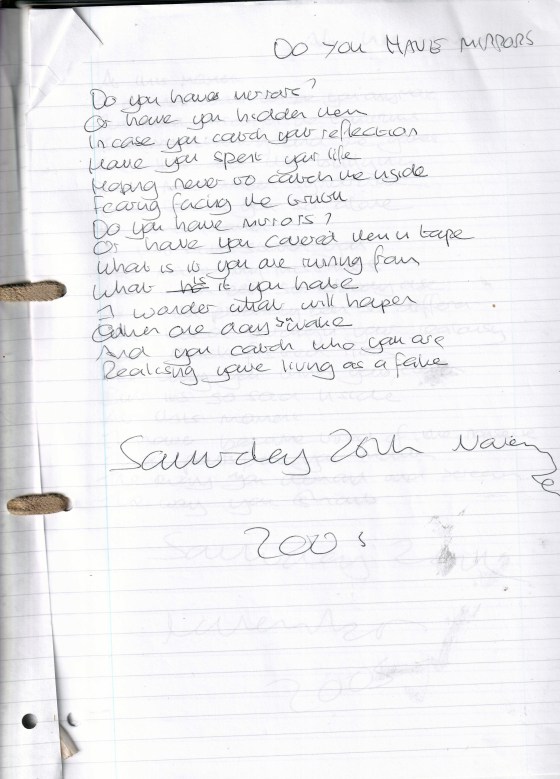 DO YOU HAVE MIRRORS
Do you have mirrors?
Or have you hidden them
In case you catch your reflection
Have you spent your life
Hoping never to catch the inside
Fearing facing the truth
Do you have mirrors?
Or have you covered them in tape
What is it you are running from
What is it you hate
I wonder what will happen
When one day you wake
And you catch who you are
Realising youve living as a fake
Saturday 26th
200